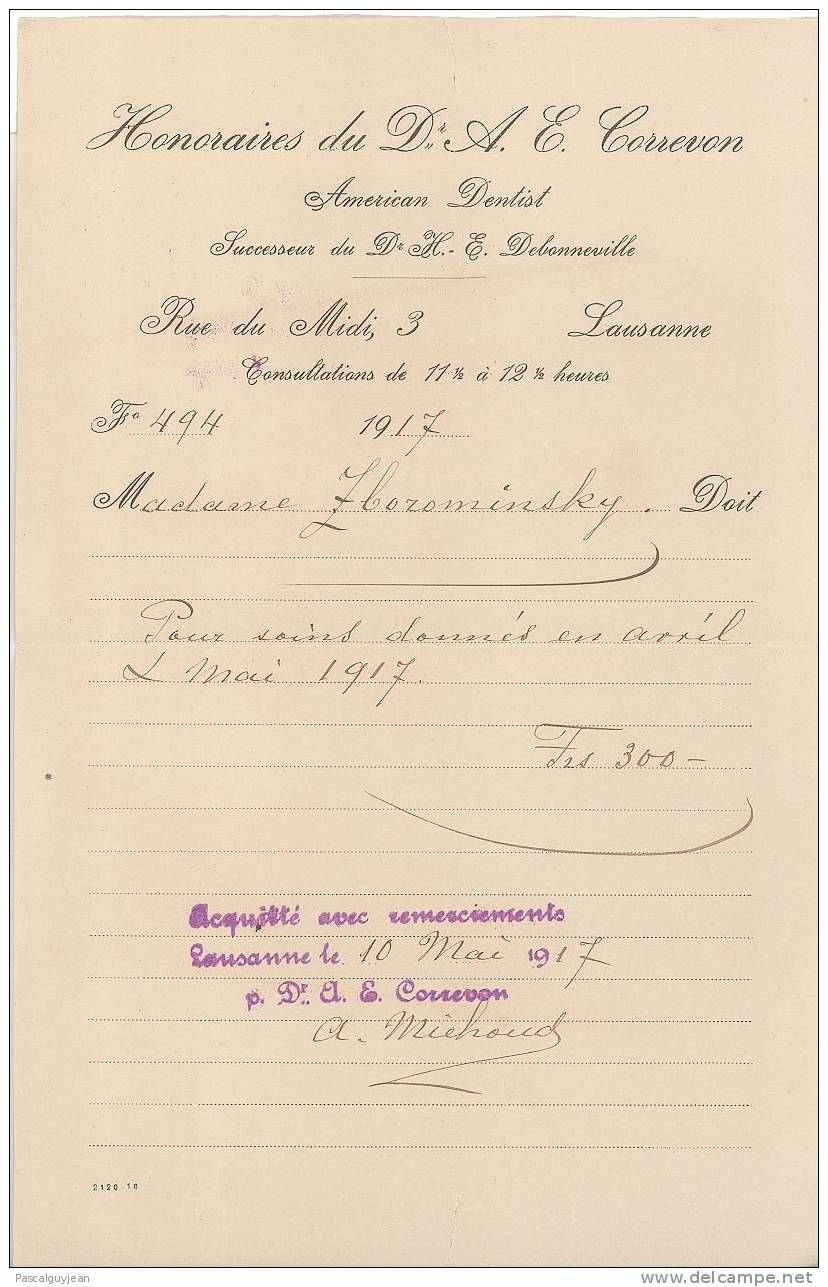 Honoraires du Dr. A. E. Correvon
American Dentist
Successeur du Dr H.-E. Debonneville
Rue du Midi, 3 Lausanne
Consultations de 11 ½ à 12 ½ heures
Fo 494 1917
Madame Doit
Pour soins donnés en avril
& Mai 1917.
Frs 300 –
Acquitté avec remerciements
Lausanne le 10 Mai 1917
p. Dr. A. E. Correvon
A. Michoud
2120 16
Pascalguyjean
www.delcampe.net